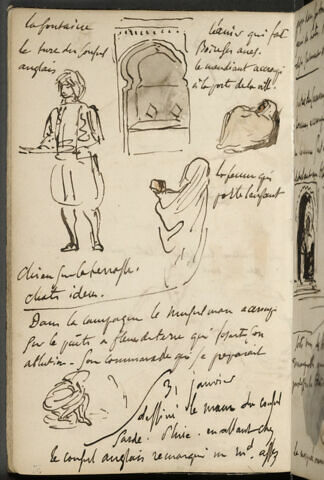 la fontaine
le turc du consul
anglais
l'ânier qui fait
boire ses ânes.
le mendiant accroupi
à la porte de la ville.
la femme qui
porte l'enfant
chien sur la terrasse.
chats idem.
Dans la campagne le musulman accroupi
sur le puits à fleur de terre qui faisait son
ablution. Son commarade qui se preparait
31 janvier
dessiné le maure du consul
Sarde. Pluie. en allant chez
le consul anglais remarqué un md. assez